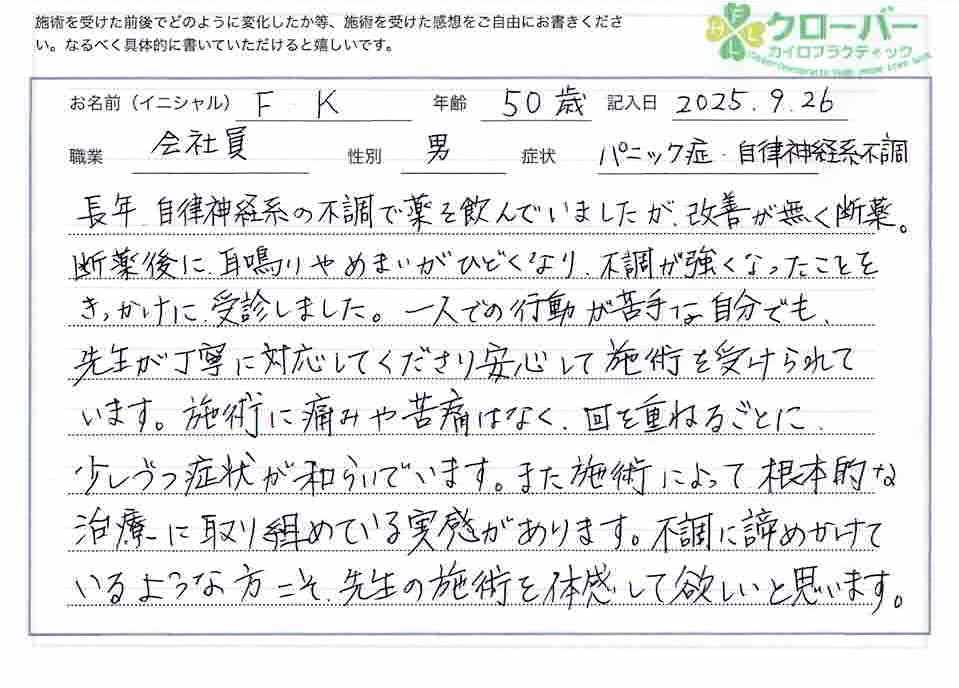 施術を受けた前後でどのように変化したか等、施術を受けた感想をご自由にお書きくださ
い。なるべく具体的に書いていただけると嬉しいです。
クローバー
カイロプラクティック
お名前（イニシャル） F K 年齢 50歳 記入日 2025.9.26
職業 会社員 性別 男 症状 パニック症・自律神経系不調
長年、自律神経系の不調で薬を飲んでいましたが、改善が無く断薬。
断薬後に、耳鳴りやめまいがひどくなり、不調が強くなったことを
きっかけに、受診しました。一人での行動が苦手な自分でも、
先生が丁寧に対応してくださり安心して施術を受けられて
います。施術に痛みや苦痛はなく、回を重ねるごとに、
少しづつ症状が和らいでいます。また施術によって根本的な
治療に取り組めている実感があります。不調に諦めかけて
いるような方こそ、先生の施術を体感して欲しいと思います。